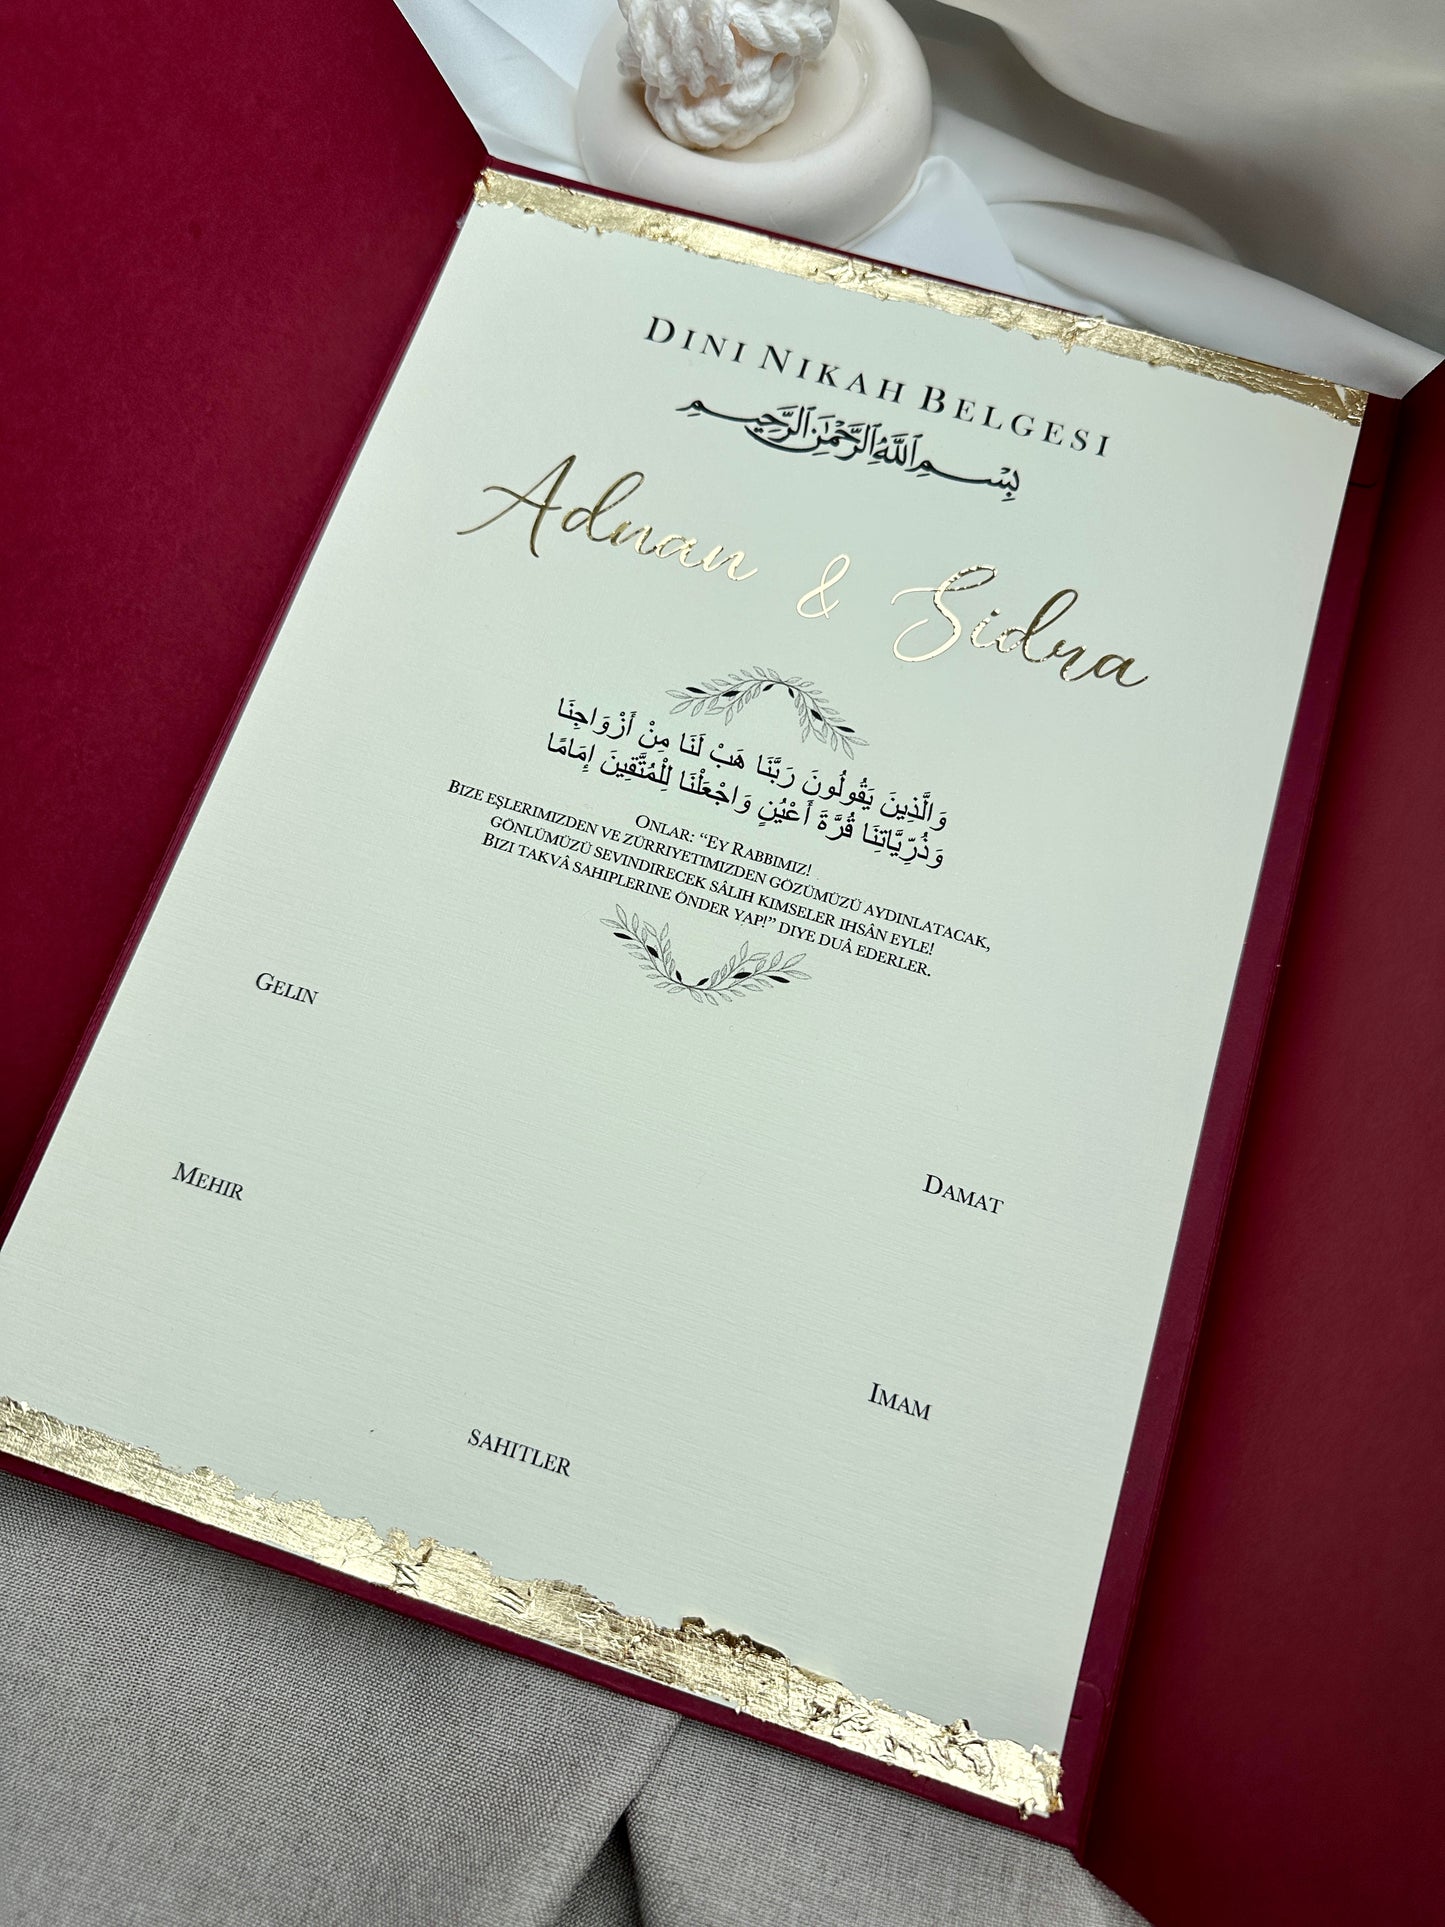 DINI NIKAH BELGESI
بِسْمِ ٱللَّهِ ٱلرَّحْمَٰنِ ٱلرَّحِيمِ
Adnan & Sidra
وَالَّذِينَ يَقُولُونَ رَبَّنَا هَبْ لَنَا مِنْ أَزْوَاجِنَا
وَذُرِّيَّاتِنَا قُرَّةَ أَعْيُنٍ وَاجْعَلْنَا لِلْمُتَّقِينَ إِمَامًا
ONLAR: “EY RABBIMIZ!
BIZE EŞLERIMIZDEN VE ZÜRRIYETIMIZDEN GÖZÜMÜZÜ AYDINLATACAK,
GÖNLÜMÜZÜ SEVINDIRECEK SÂLIH KIMSELER IHSÂN EYLE!
BIZI TAKVÂ SAHIPLERINE ÖNDER YAP!” DIYE DUÂ EDERLER.
GELIN
DAMAT
MEHIR
IMAM
SAHITLER